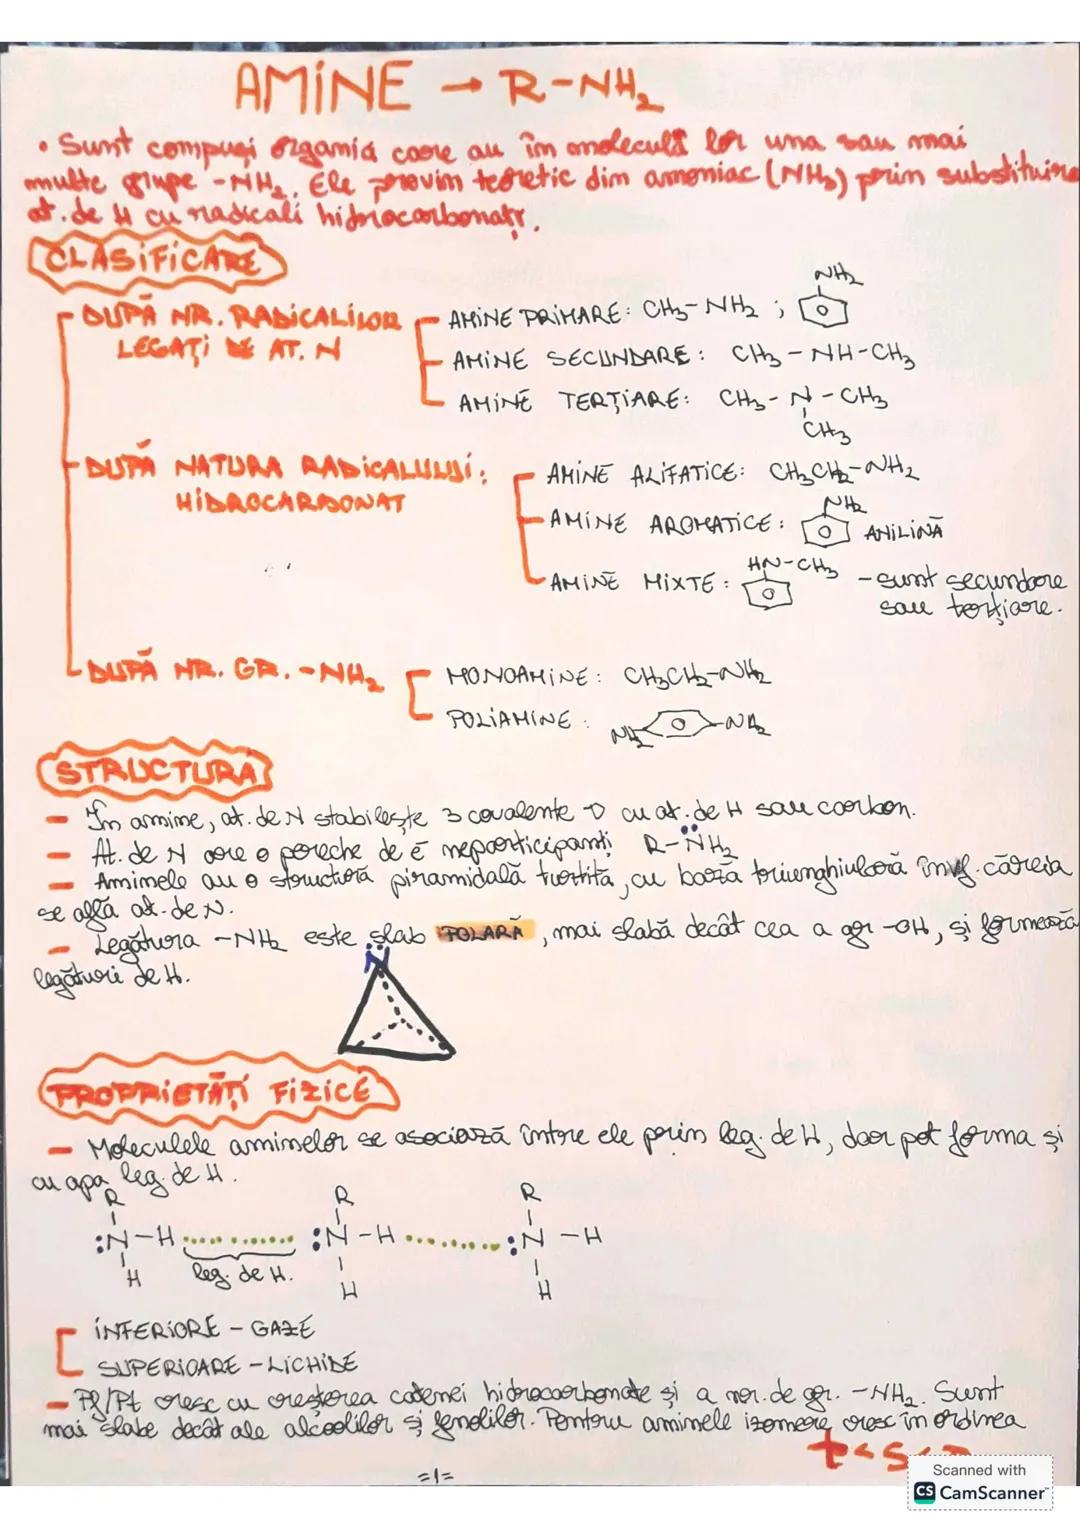 AMINE → R-NH₂
• Sunt compuși organici care au în moleculă lor una sau mai
multe grupe -NH₂. Ele provin teoretic din amoniac (NH₃) prin substituirea
at. de H cu radicali hidrocarbonați.
CLASIFICARE
DUPĂ NR. RADICALILOR
LEGAȚI DE AT. N
AMINE PRIMARE: CH₃-NH₂ ; NH₂
AMINE SECUNDARE: CH₃-NH-CH₃
AMINE TERȚIARE: CH₃-N-CH₃
CH₃
DUPĂ NATURA RADICALULUI:
HIDROCARBONAT
AMINE ALIFATICE: CH₃CH₂-NH₂
AMINE AROMATICE: NH₂ ANILINĂ
AMINE MIXTE: HN-CH₃ - sunt secundare
sau terțiare.
DUPĂ NR. GR. -NH₂
MONOAMINE: CH₃CH₂-NH₂
POLIAMINE: NH₂ -NH₂
STRUCTURĂ
- În amine, at. de N stabilește 3 covalente σ cu at. de H sau carbon.
- At. de N are o pereche de e⁻ neparticipanți R-N̈H₂
- Aminele au o structură piramidală turtită, cu bază triunghiulară în vf. căreia
se află at. de N.
- Legătura -NH₂ este slab POLARĂ, mai slabă decât cea a gr -OH, și formează
legături de H.
N
PROPRIETĂȚI FIZICE
- Moleculele aminelor se asociază între ele prin leg. de H, dar pot forma și
cu apa leg. de H.
R R R
:N-H ............ :N-H ......... :N-H
H leg. de H. H H
INFERIORE - GAZE
SUPERIOARE - LICHIDE
- Pf/Pt cresc cu creșterea catenei hidrocarbonate și a nr. de gr. -NH₂. Sunt
mai slabe decât ale alcoolilor și fenolilor. Pentru aminele izomere cresc în ordinea
t<s
=1=
Scanned with
CS CamScanner™